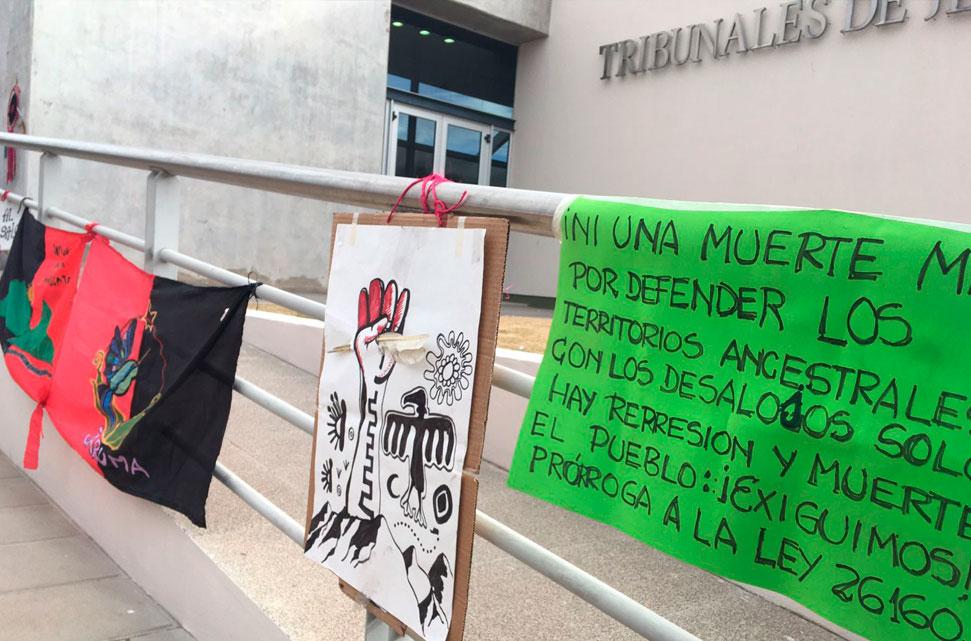 TRIBUNALES DE
¡NI UNA MUERTE
POR DEFENDER LOS
TERRITORIOS ANCESTRALES
CON LOS DESALOJOS SOLO
HAY REPRESION Y MUERTE
EL PUEBLO::¡EXIGUIMOS!
PRÓRROGA A LA LEY 26160